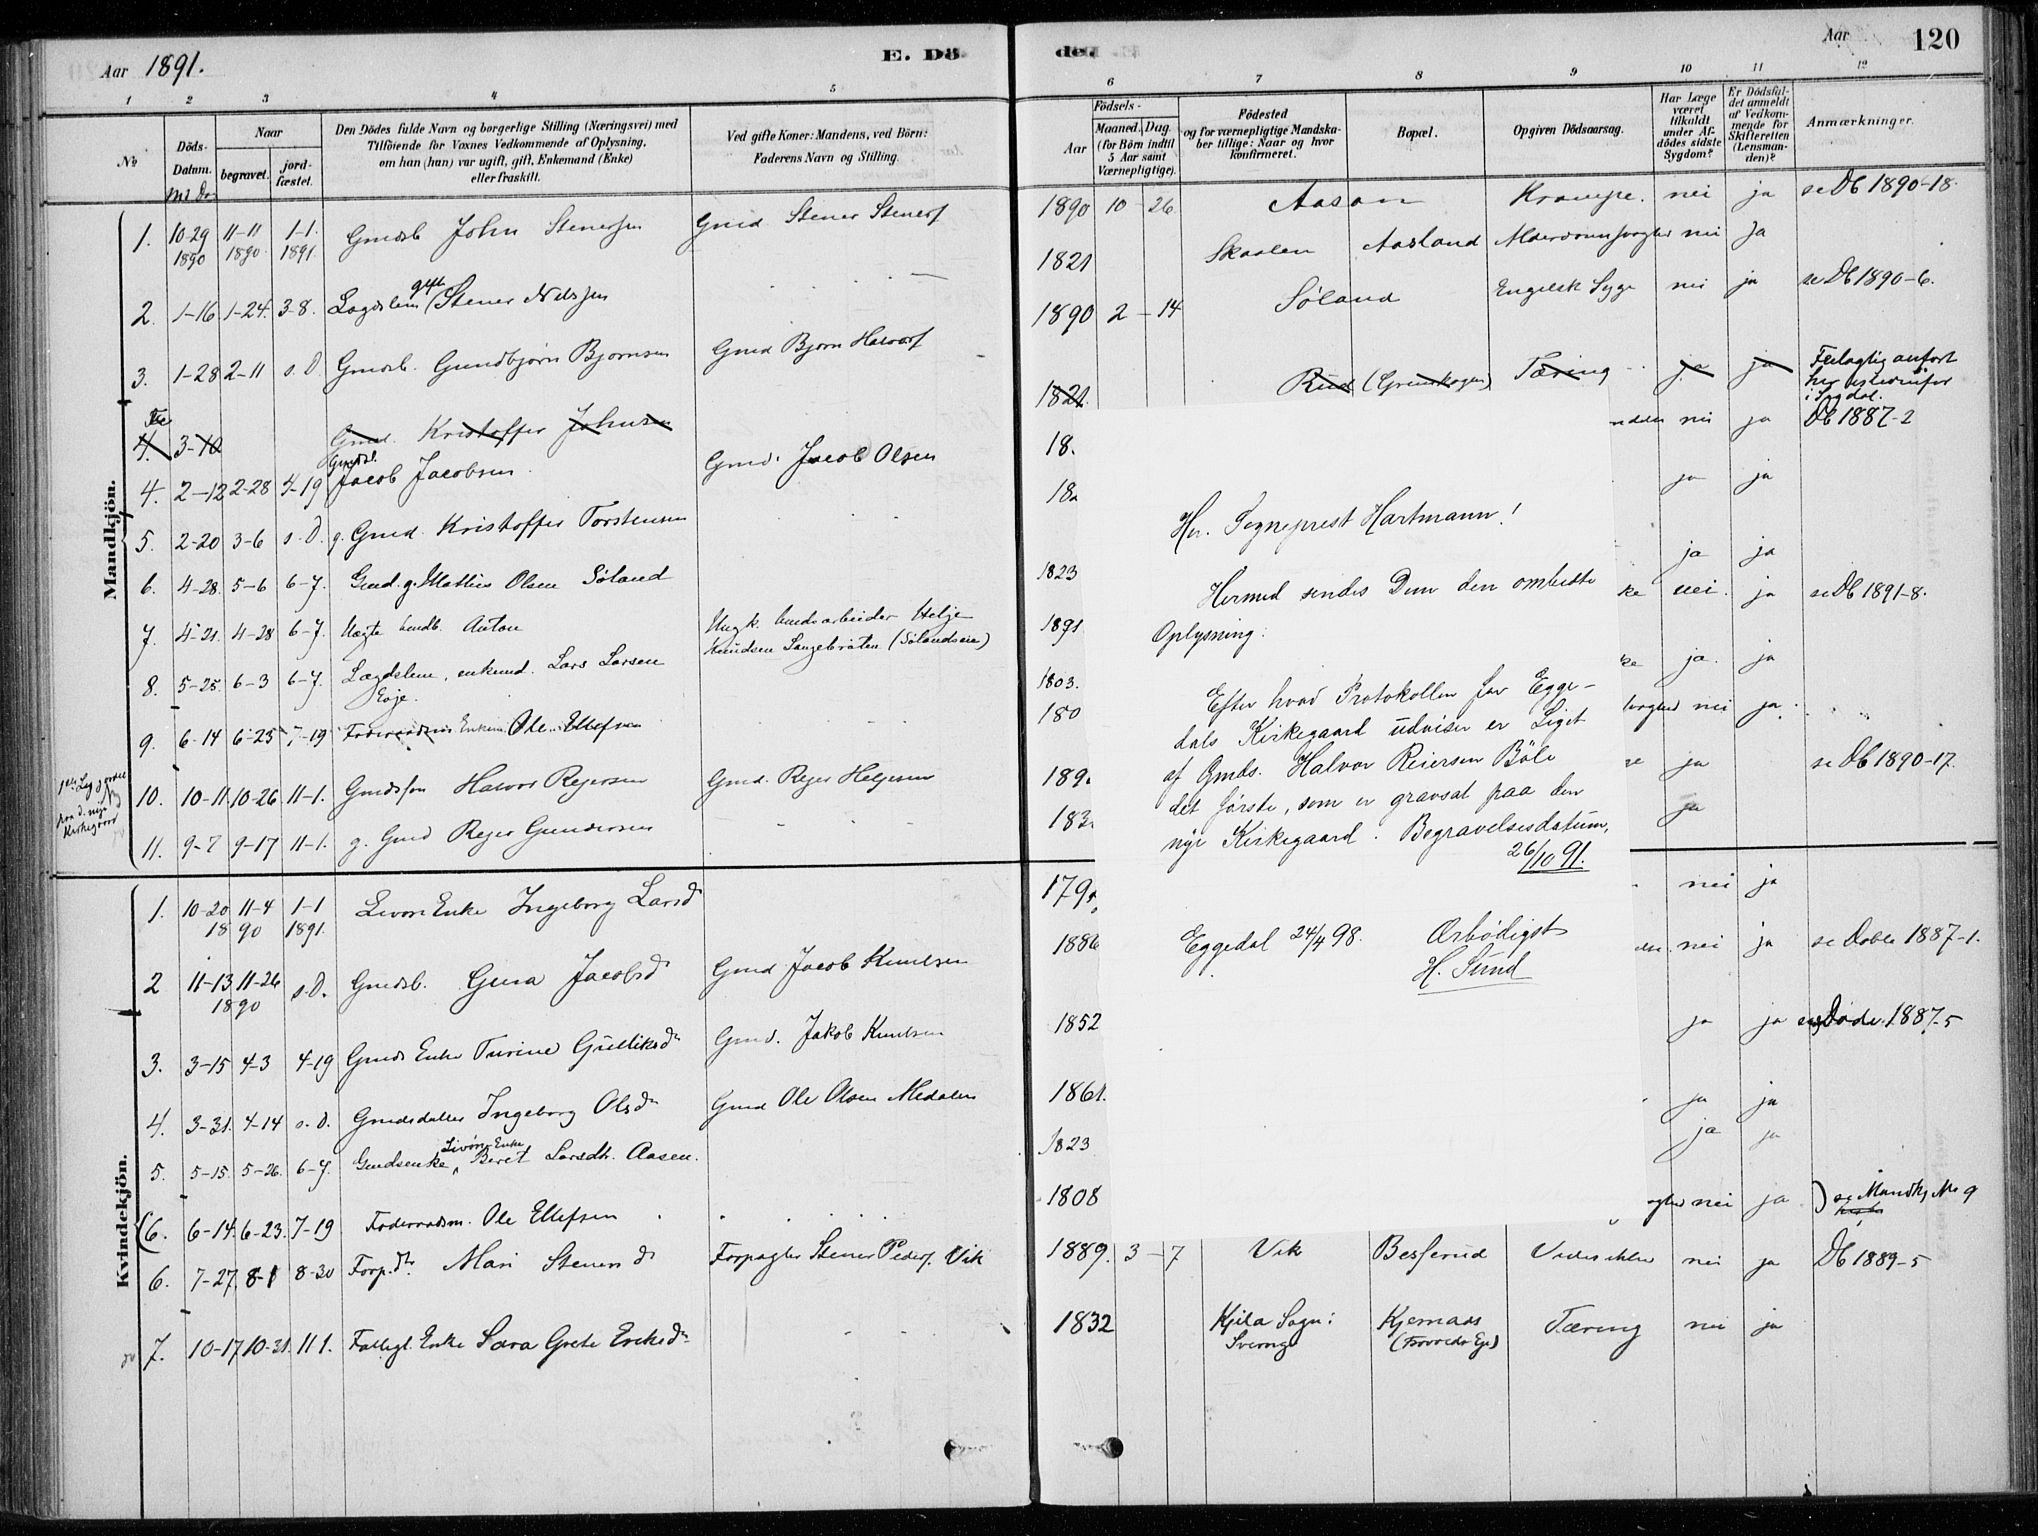 Aar 1891.
E. Dö
1 2 3 4 5
No
Döds-
Datum.
Md Da
Naar
begravet.
jord-
fæstet.
Den Dödes fulde Navn og borgerlige Stilling (Næringsvei) med
Tilföiende for Voxnes Vedkommende af Oplysning,
om han (hun) var ugift, gift, Enkemand (Enke)
eller fraskilt.
Ved gifte Koner: Mandens, ved Börn:
Faderens Navn og Stilling.
Mandkjön.
1. 10-29 11-11 1-1. Gmdsb John Stenersen Gmd Stener Stenersf
1890 1890 1891
gift
2. 1-16 1-24. 3-8. Lægdslem Stener Nilssen
3. 1-28 2-11 s. D Gmdsb. Gundbjørn Bjørnsen Gmd Bjørn Halvorsf
4. 3-10 Gmd. Kristoffer Johnsen
Gmdsb.
4. 2-12 2-28 4-19 Jacob Jacobsen. Gmd. Jacob Olsen
5. 2-20 3-6 s. D. g. Gmd. Kristoffer Torstensen
6. 4-28. 5-6 6-7. Gmd. g. Mathias Olsen Søland
7. 4-21. 4-28 6-7. Uægte Anton Ungk. Helge
Knudsen Langebråten (Sølandseie)
8. 5-25. 6-3 6-7. Lægdslem, enkemd. Lars Larsen
Eoje.
9. 6-14 6-23 7-19 Ole Ellefsen
10. 10-11 10-26 11-1. Gmdssøn Halvor Reiersen Gmd. Reier Helgesen
11. 9-7 9-17 11-1. g. Gmd Reier Gundersen
Kvindekjön.
1. 10-20 11-4 1-1 Enke Ingeborg Larsd
1890 1891.
2 11-13 11-26 s. D. Gmdsb. Gura Jacobsd Gmd Jacob Knudsen
1890
3. 3-15 4-3 4-19 Gmds Enke Turine Gulliksdr Gmd. Jakob Knudsen
4. 3-31. 4-14 s. D. Gmdsdatter Ingeborg Olsdr Gmd Ole Olsen Medalen
5. 5-15. 5-26. 6-7. Gmdsenke Beret Larsdtr. Aasen.
6. 6-14. 6-23. 7-19 Foderraadsm. Ole Ellefsen
6. 7-27. 8-1 8-30 Forp.dr. Mari Stenersd Forpagter Stener Pedersf. Vik
7. 10-17 10-31. 11 1. Enke Sara Grete Eriksdr
den
Aar 120
6 7 8 9 10 11 12
Födsels-
Aar
Maaned. Dag.
(for Börn indtil
5 Aar samt
Værnepligtige).
Födested
og for værnepligtige Mandska-
ber tillige: Naar og hvor
konfirmeret.
Bopæl.
Opgiven Dödsaarsag.
Har Læge
været
tilkaldt
under Af-
dödes sidste
Sygdom?
Er Dödsfal-
det anmeldt
af Vedkom-
mende for
Skifteretten
(Lensman-
den)?
Anmærkninger.
1890 10 - 26 Aasan Krampe. nei ja se Db 1890-18.
1821 Skaalen Aasland Alderdomssvaghed nei Ja
1890 2 - 14 Søland Engelsk Syge nei ja se Db 1890-6.
1821. Rud Tæring ja ja Feilagtig anført
i Sigdal.
18. nei ja Db 1887-2
18 ja ja
1823 ja ja
1891 nei. ja se Db 1891-8.
1803. ja. ja
180 nei ja.
189 ja se Db 1890-17.
183 ja
179 nei ja
1886 nei ja se Døbte 1887-1.
1852 ja ja 1887-5
1861. ja ja
1823 ja ja
1808 nei ja se Mandkj No 9
1889. 3 - 7 Vik Besserud nei ja Db 1889-5
1832 Kjila Sogn: Kjernaas Tæring nei ja
Sverrig
Hr. Sogneprest Hartmann!
Hermed sendes Dem den ombedte
Oplysning:
Efter hvad Protokollen for Egge-
dals Kirkegaard udviser er Liget
af Gmds. Halvor Reiersen Bøle
det første, som er gravsat paa den
nye Kirkegaard. Begravelsesdatum,
26/10 91.
Eggedal 24/4 98. Ærbødigst
H. Sund